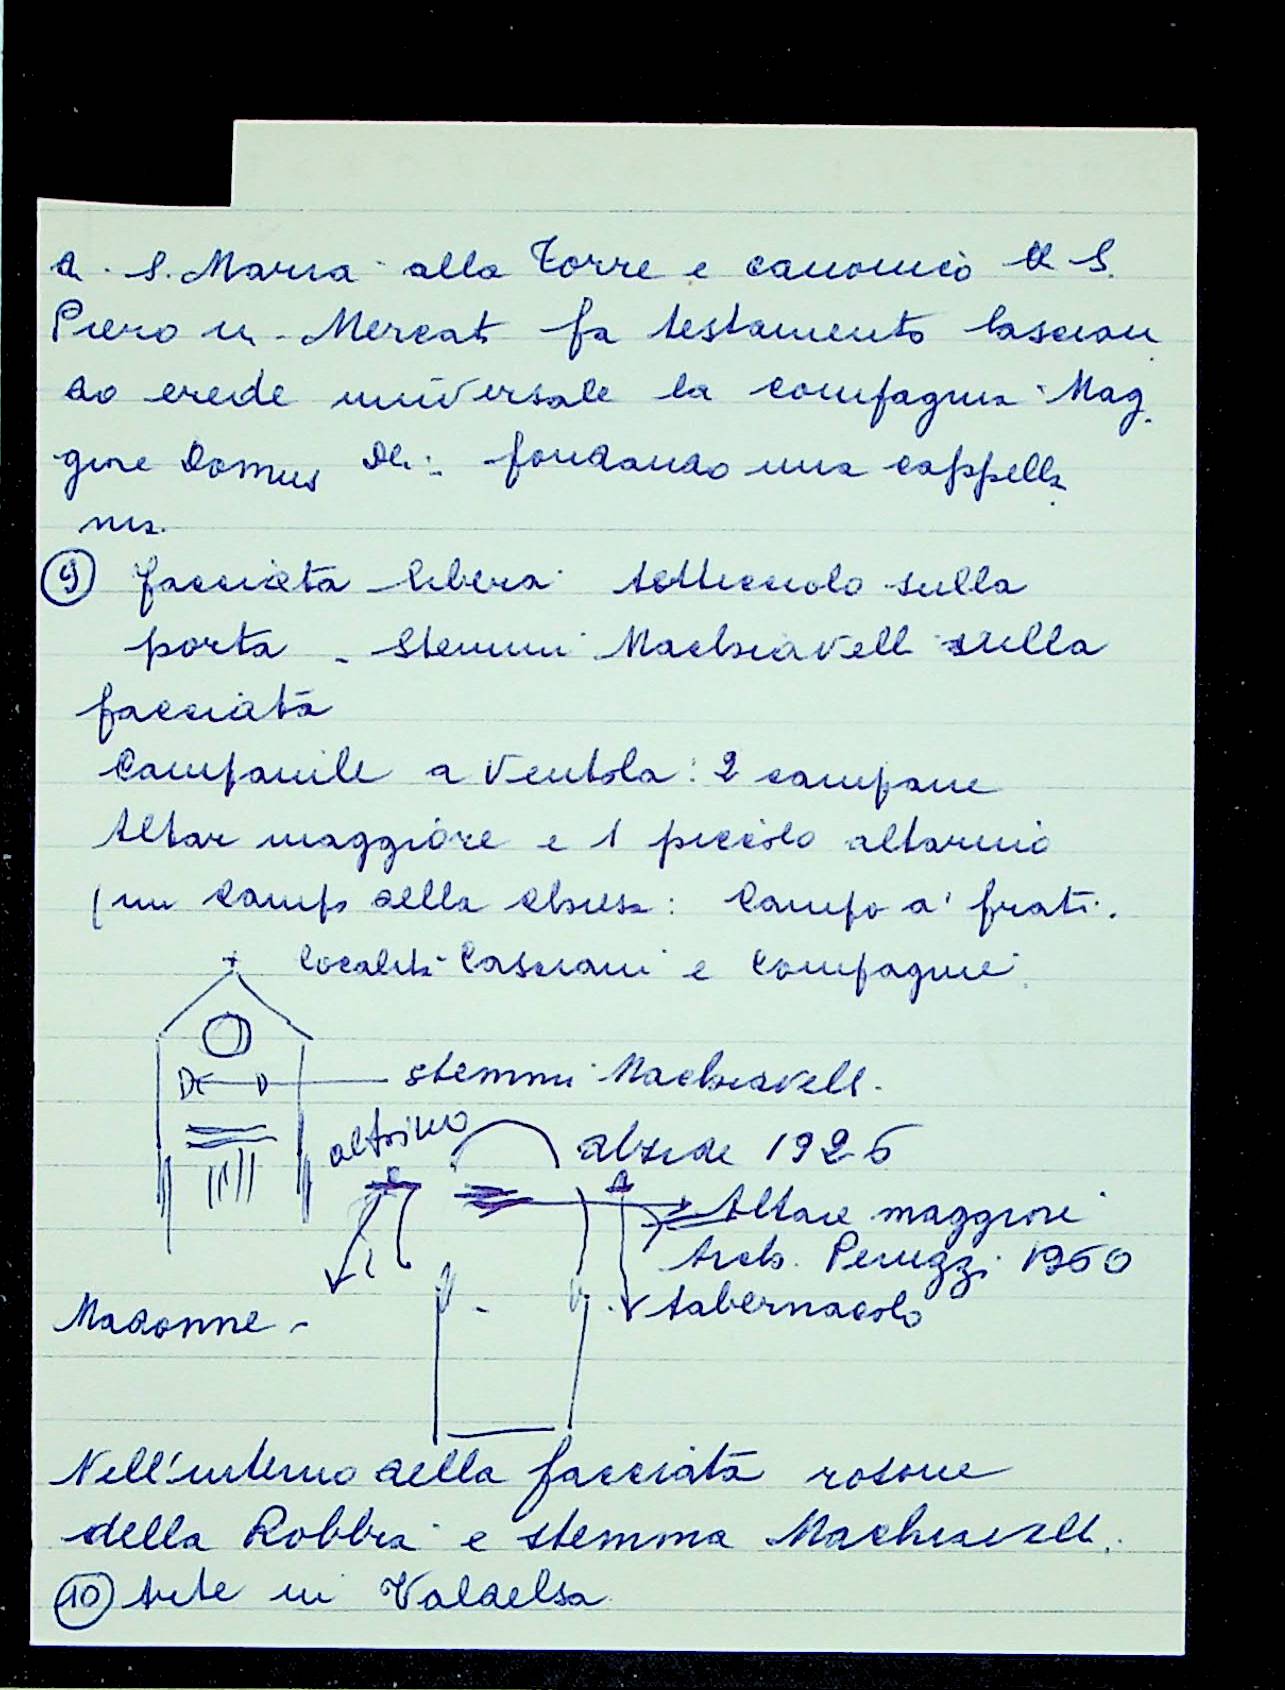 di S. Maria alla Torre e canonico di S.
Piero in Mercato fa testamento lascian
do erede universale la compagnia Mag
giore Domus Dei: fondando una cappella
nia.
9 facciata libera tetticciolo sulla
porta - stemmi Machiavelli sulla
facciata
Campanile a ventola: 2 campane
Altar maggiore e 1 piccolo altarino
(un campo della chiesa: Campo a' frati.
località Casciani e Compagnie.
stemmi Machiavelli.
altrino
abside 1926
Altare maggiore
Arch. Peruzzi 1960
tabernacolo
Madonne -
Nell'interno della facciata rosone
della Robbia e stemma Machiavelli.
10 Arte in Valdelsa